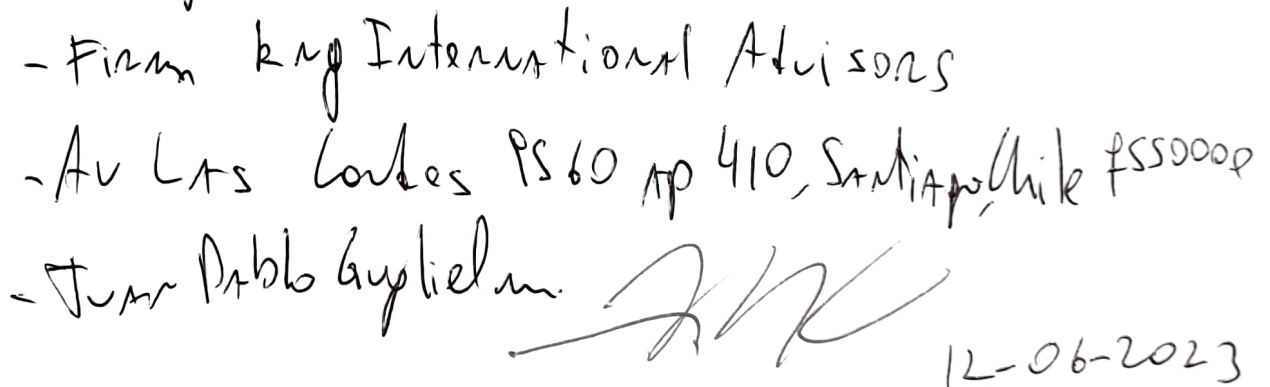 - Firm kng International Advisors
- Av Las Condes 9560 AP 410, Santiago, Chile 7550000
- Juan Pablo Guglielm
12-06-2023